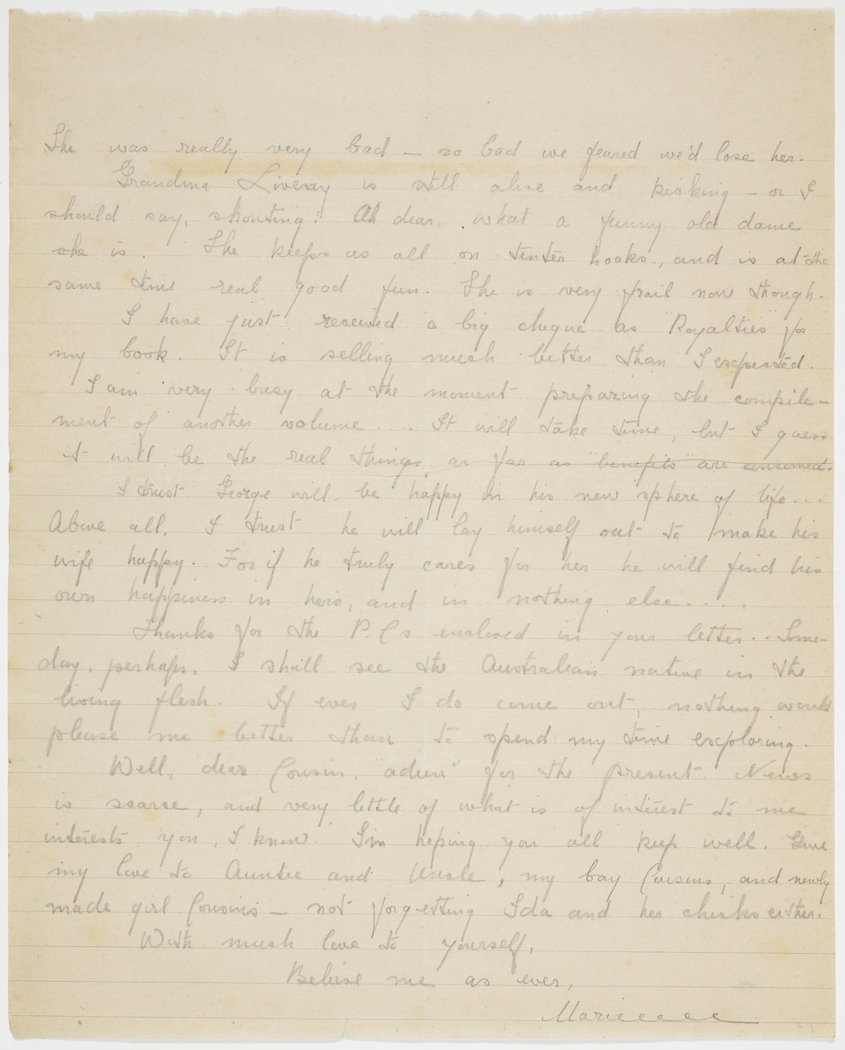 She was really very bad — so bad we feared we'd lose her.
Grandma Livesey is still alive and kicking — or I
should say, shouting! Ah dear, what a funny old dame
she is. She keeps us all on tenter hooks, and is at the
same time real good fun. She is very frail now though.
I have just received a big cheque as "Royalties" for
my book. It is selling much better than I expected.
I am very busy at the moment preparing the compile-
ment of another volume .... It will take time, but I guess
it will be the real things, as far as "benefits" are concerned.
I trust George will be happy in his new sphere of life...
Above all, I trust he will lay himself out to make his
wife happy. For if he truly cares for her he will find his
own happiness in hers, and in nothing else....
Thanks for the P.Cs enclosed in your letter.. Some-
day, perhaps, I shall see the Australian native in the
living flesh. If ever I do come out, nothing would
please me better than to spend my time exploring.
Well, dear Cousin, adieu for the present. News
is scarce, and very little of what is of interest to me
interests you, I know. I'm hoping you all keep well. Give
my love to Auntie and Uncle, my boy Cousins, and newly
made girl Cousins — not forgetting Ida and her chicks either.
With much love to yourself,
Believe me as ever,
Marie